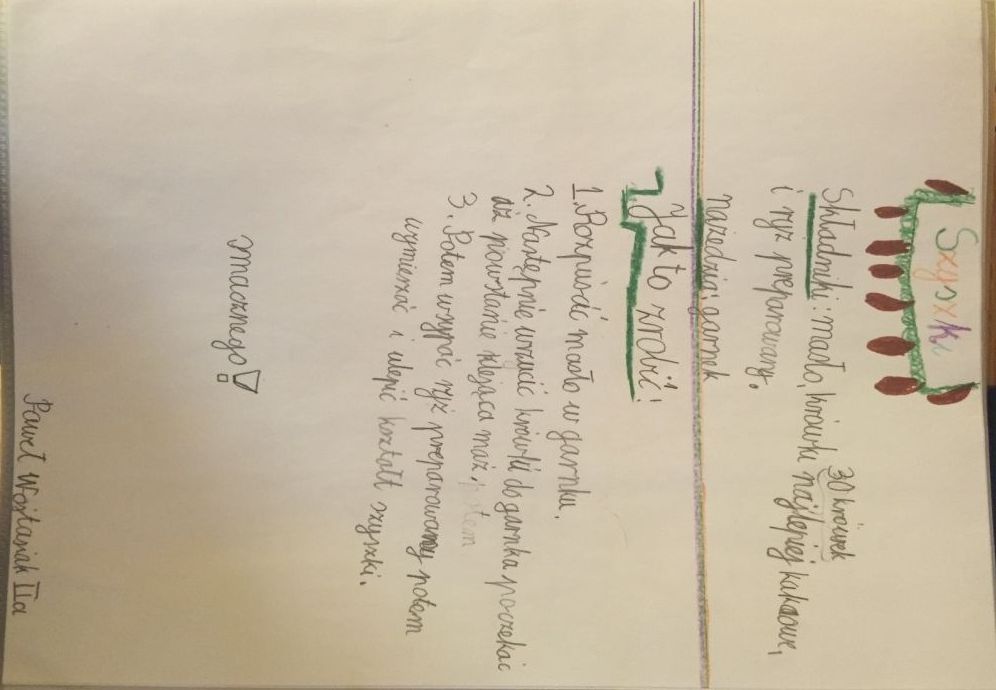 Szyszki
30 krówek
Składniki: masło, krówki najlepiej kakaowe,
i ryż preparowany.
nażędzia: garnek
Jak to zrobić!
1. Rozpuścić masło w garnku.
2. Następnie wrzucić krówki do garnka poczekać
aż powstanie klejąca maź. potem
3. Potem wsypać ryż preparowany potem
wymieszać i ulepić kształt szyszki.
smacznego!
Paweł Wojtasiak IIa